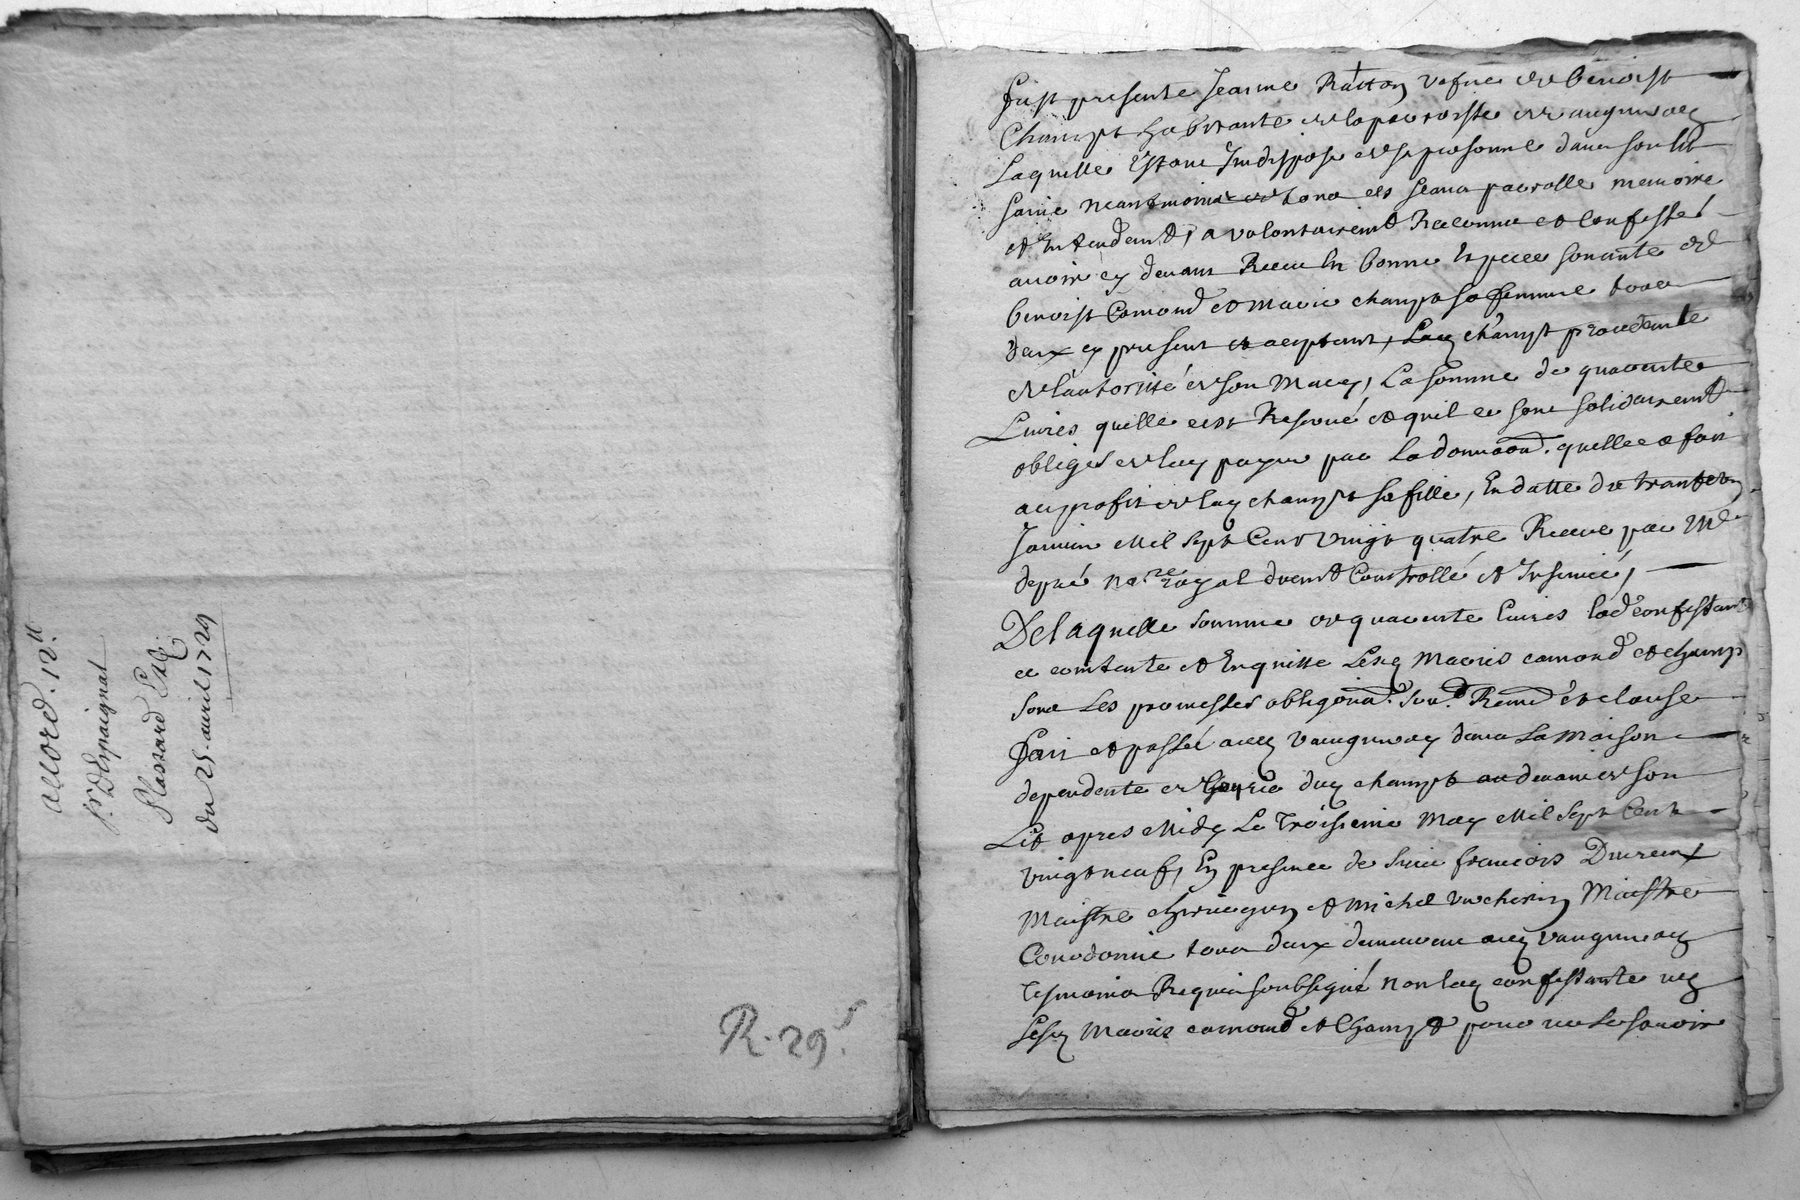 accord. 12.ll
Sr. Despaignat
Plassard
du 25. auril 1729
R. 29. s
Fust presente Jeanne Ratton vefue de benoist
Champt habitante de la parroisse de vaugneray
Laquelle Estant Indispose de sa personne dans son lit
saine neantmoins de tous ses sens parolle memoire
et Entendemt, a volontairemt Reconnu et confessé
auoir cy deuant Receu En bonne Espece sonante de
benoist Camond et marie champt sa femme tous
deux cy present et aceptant, Lad champt procedante
de lautorité de son Mary, La somme de quarante
Liures quelle sest Reserué et quil se sont solidairemt
obliges de luy payer par La donnaon. quelle a fait
au profit de lad champt sa fille, En datte du trante un
Januier Mil sept Cent vingt quatre Receue par Me
depué nore royal duemt Controllé et Insinué,
De laquelle somme de quarante liures lade confessante
se contente et En quitte Lesd Mariés camond et champ
sous Les promesses obligaons. Renond et clause
Fait et passé aud vaugneray dans La Maison
dependente de hoirie dud champt au deuant de son
Lit apres Midy Le Troisieme May Mil sept Cent
vingt neuf, En presence de sieur francois Dureux
Maistre chirurgien et michel vucherin Maistre
Cordonnier tous deux demeurant aud vaugneray
Tesmoins Requis soubsigné non lad confessante ny
Lesd Mariés camond et Champt pour ne le scauoir